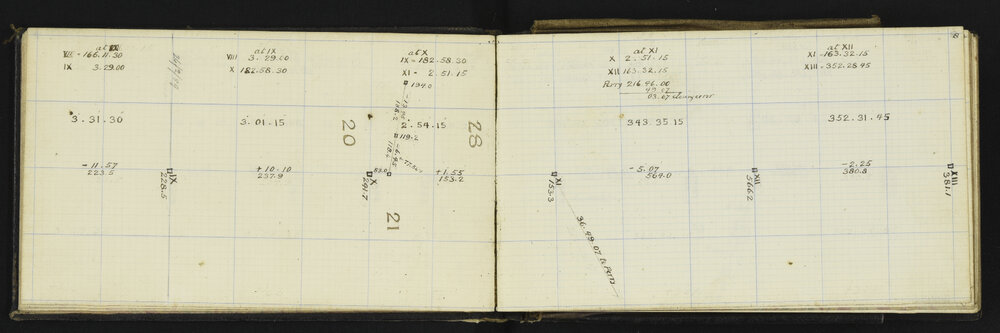 at IX
VIII - 166.11.30
IX 3.29.00
at IX
VIII 3.29.00
X 182.58.30
at X
IX = 182.58.30
XI = 2.51.15
134.0
118.2
119.2
118.4
83.0
3.31.30
3.01.15
2.54.15
20
28
21
- 11.57
223.5
IX
228.5
+ 10.10
237.9
X
241.7
+ 1.55
153.2
8
at XI
X 2.51.15
XII 163.32.15
Perry 216.46.00
49.07
03.07 slang error
at XII
XI - 163.32.15
XIII - 352.28.45
343.35.15
352.31.45
XI
153.3
- 5.07
564.0
XII
566.2
- 2.25
380.8
XIII
381.1
36.49.07 to Perry